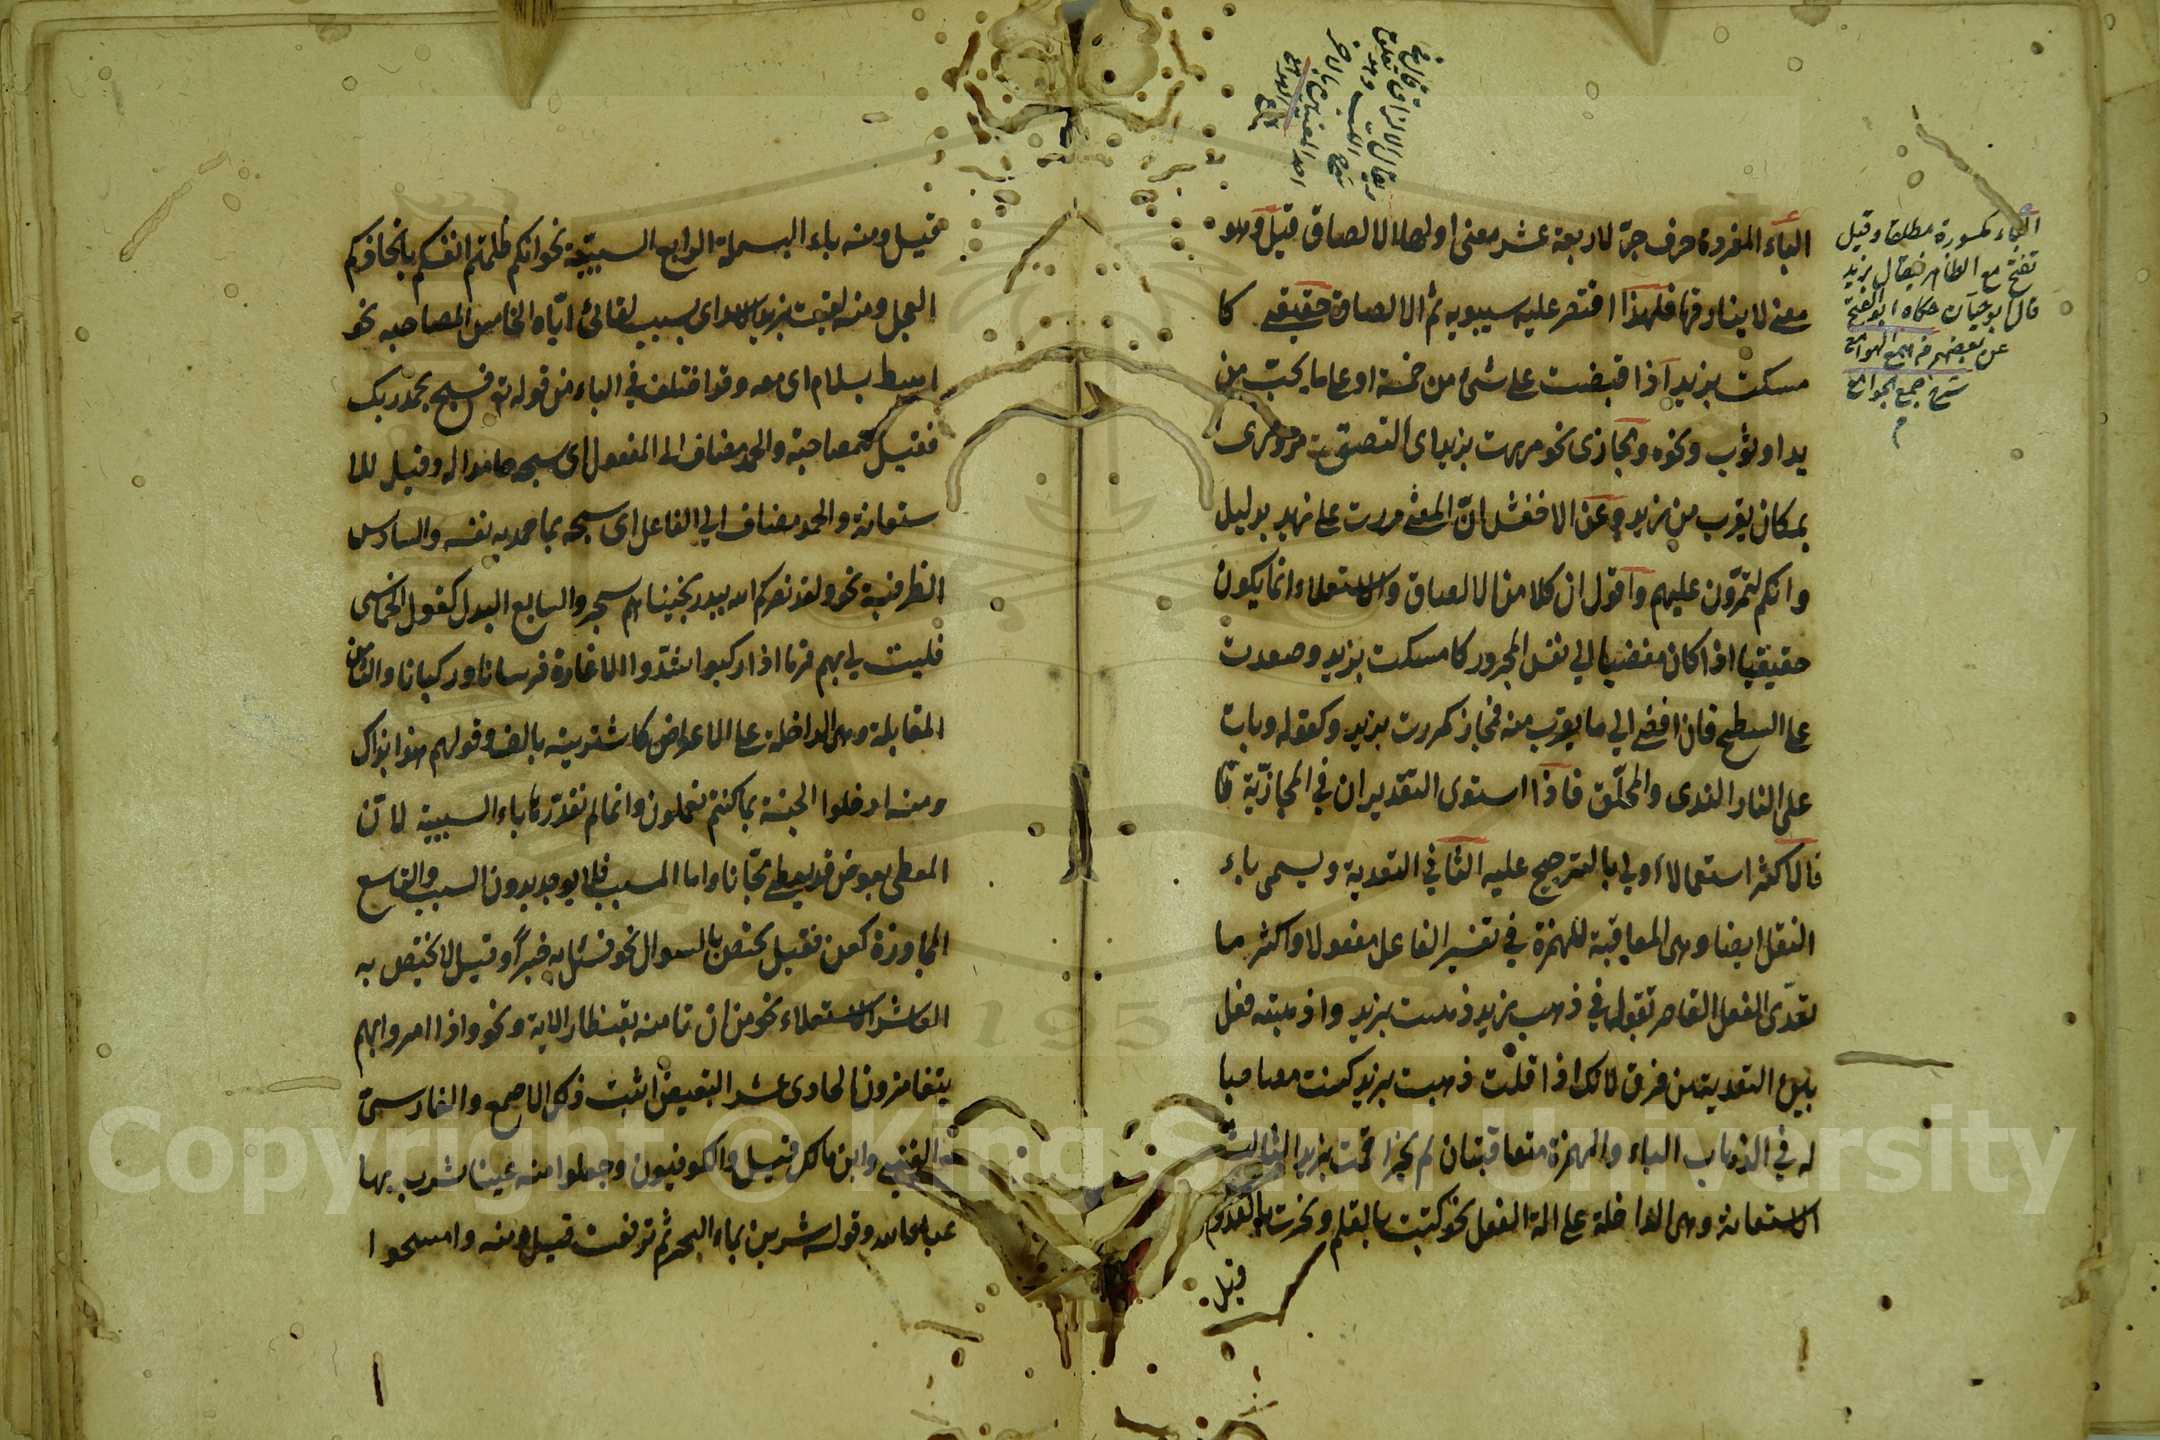 الباء المفردة حرف جرّ لاربعة عشر معنى اولها الالصاق قيل وهو
معنى لا يفارقها فلهذا اقتصر عليه سيبويه ثم الالصاق حقيقي كا
مسكت بزيد اذا قبضت على شئ من جسمه او على ما يحبسه من
يد او ثوب ونحوه ومجازى نحو مررت بزيد اى التصق مرورى
بمكان يقرب من زيد وعن الاخفش انّ المعنى مررت على زيد بدليل
وانكم لتمرّون عليهم واقول ان كلا من الالصاق والاستعلاء انما يكون
حقيقيا اذا كان مفضيا الى نفس المجرور كامسكت بزيد وصعدت
على السطح فان افضى الى ما يقرب منه فمجاز كمررت بزيد وكقوله وبات
على النار الندى والمحلّق فاذا استوى التقديران في المجازيّة
فالاكثر استعمالا اولى بالترجيح عليه الثاني التعدية ويسمى باء
النقل ايضا وهى المعاقبة للهمزة في تفسير الفاعل مفعولا واكثر ما
تعدّى الفعل القاصر تقول في ذهب زيد ذهبت بزيد واذهبته فعل
بين التعديتين فرق لانك اذا قلت ذهبت بزيد كنت مصاحبا
له في الذهاب الباء والهمزة متعاقبتان لم يجز اقمت بزيد الثالث
الاستعانة وهى الداخلة على الة الفعل نحو كتبت بالقلم ونجرت بالقدوم
قيل
الباء مكسورة مطلقا وقيل
تفتح مع الظاهر فيقال بزيد
قال ابو حيان حكاه ابو الفتح
عن بعضهم همع الهوامع
شرح جمع الجوامع
قيل ومنه باء البسملة الرابع السببيّة نحو انكم ظلمتم انفسكم باتخاذكم
العجل ومنه لقيت بزيد الاسد اى بسبب لقائى ايّاه الخامس المصاحبة نحو
اهبط بسلام اى معه وقد اختلف في الباء من قوله تع فسبح بحمد ربك
فقيل للمصاحبة والحمد مضاف الى المفعول اى سبحه حامدا له وقيل للا
ستعانة والحمد مضاف الى الفاعل اى سبحه بما حمد به نفسه والسادس
الظرفية نحو ولقد نصركم الله ببدر نجيناهم بسحر والسابع البدل كقول الحماسى
فليت لي بهم قوما اذا ركبوا شدّوا الاغارة فرسانا وركبانا والثامن
المقابلة وهى الداخلة على الاعواض كاشتريته بالف وقولهم هذا بذاك
ومنه ادخلوا الجنة بما كنتم تعملون وانما لم نقدّرها باء السببية لانّ
المعطى بعوض قد يعطى مجّانا واما المسبب فلا يوجد بدون السبب والتاسع
المجاوزة كعن فقيل تختص بالسوال نحو فسئل به خبيرًا وقيل لا تختص به
العاشر الاستعلاء نحو من ان تامنه بقنطار الاية ونحو واذا مروا بهم
يتغامزون الحادى عشر التبعيض اثبت ذلك الاصمعى والفارسىّ
والقتبى وابن مالك قيل والكوفيون وجعلوا منه عينا يشرب بها
عباد الله وقوله شربن بماء البحر ثم ترفعت قيل ومنه وامسحوا
Copyright © King Saud University
1957